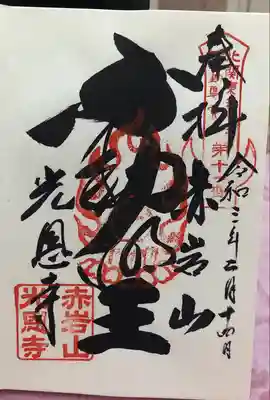 奉拝
赤岩山
令和三年二月十四日
不動明王
光恩寺
北関東
赤岩山
光恩寺